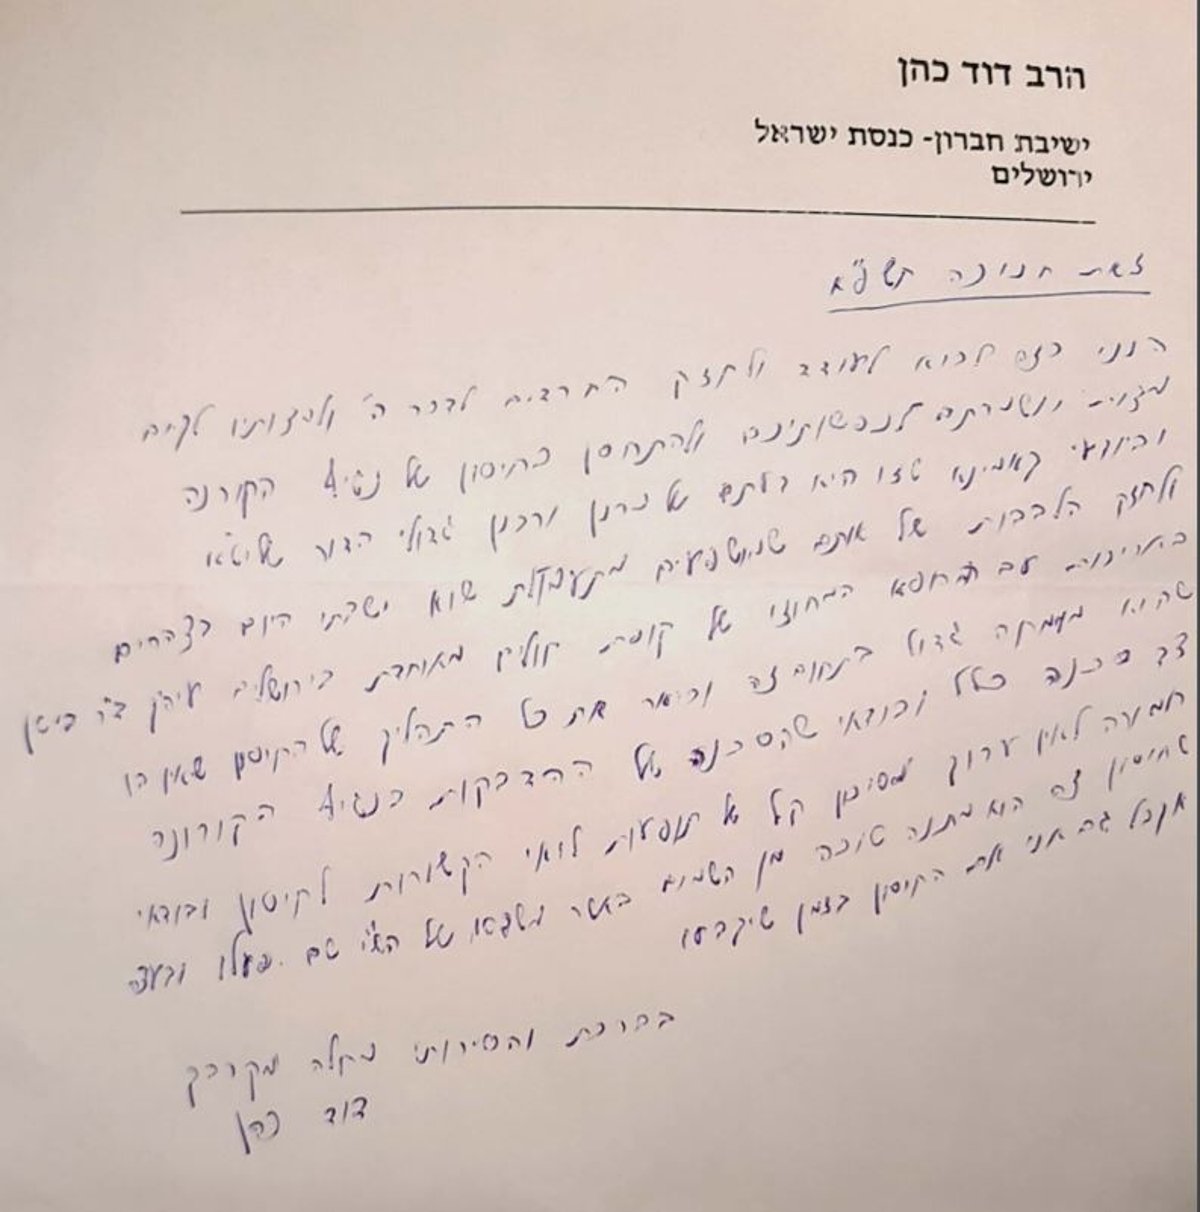 הרב דוד כהן
ישיבת חברון- כנסת ישראל
ירושלים
זאת חנוכה תשפ"א
הנני בזה לבוא לעודד ולחזק החרדים לדבר ה' ולמצוותיו לקיים
מצות ונשמרתם לנפשותיכם ולהתחסן בחיסון של נגיף הקורנה
וביודעי קאמינא שזו היא דעתם של מרנן ורבנן גדולי הדור שליט"א
ולחזק הלבבות של אותם שמושפעים מתעמולת שוא ישבתי היום בצהרים
באריכות עם הרופא המחוזי של קופת חולים מאוחדת בירושלים עיה"ק ד"ר
שהוא מומחה גדול בתחום זה וביאר את כל התהליך של החיסון שאין בו
צד סכנה כלל ובודאי שהסכנה של ההדבקות בנגיף הקורונה
חמורה לאין ערוך מסיכון קל של תופעות לואי הקשורות לחיסון ובודאי
שחיסון זה הוא מתנה טובה מן השמים באשר של השי שם פעלו ובעצה
אקבל גם אני את החיסון בזמן שיקבעו
בברכת והסירותי מחלה מקרבך
דוד כהן